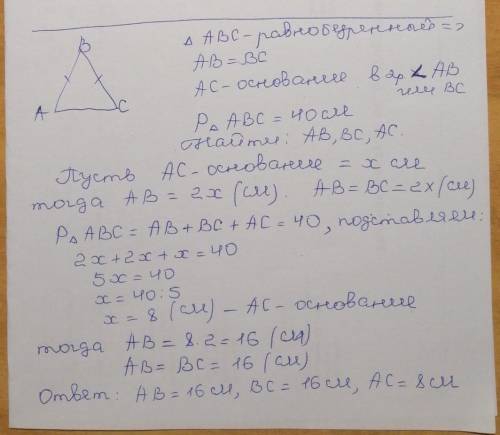 B
A
C
△ ABC - равнобедренный =>
AB = BC
AC - основание в 2р < AB
или BC
P△ ABC = 40 см
Найти: AB, BC, AC.
Пусть AC - основание = x см
тогда AB = 2x (см). AB = BC = 2x (см)
P△ ABC = AB + BC + AC = 40, подставляем:
2x + 2x + x = 40
5x = 40
x = 40 : 5
x = 8 (см) - AC - основание
тогда AB = 8 · 2 = 16 (см)
AB = BC = 16 (см)
Ответ: AB = 16 см, BC = 16 см, AC = 8 см